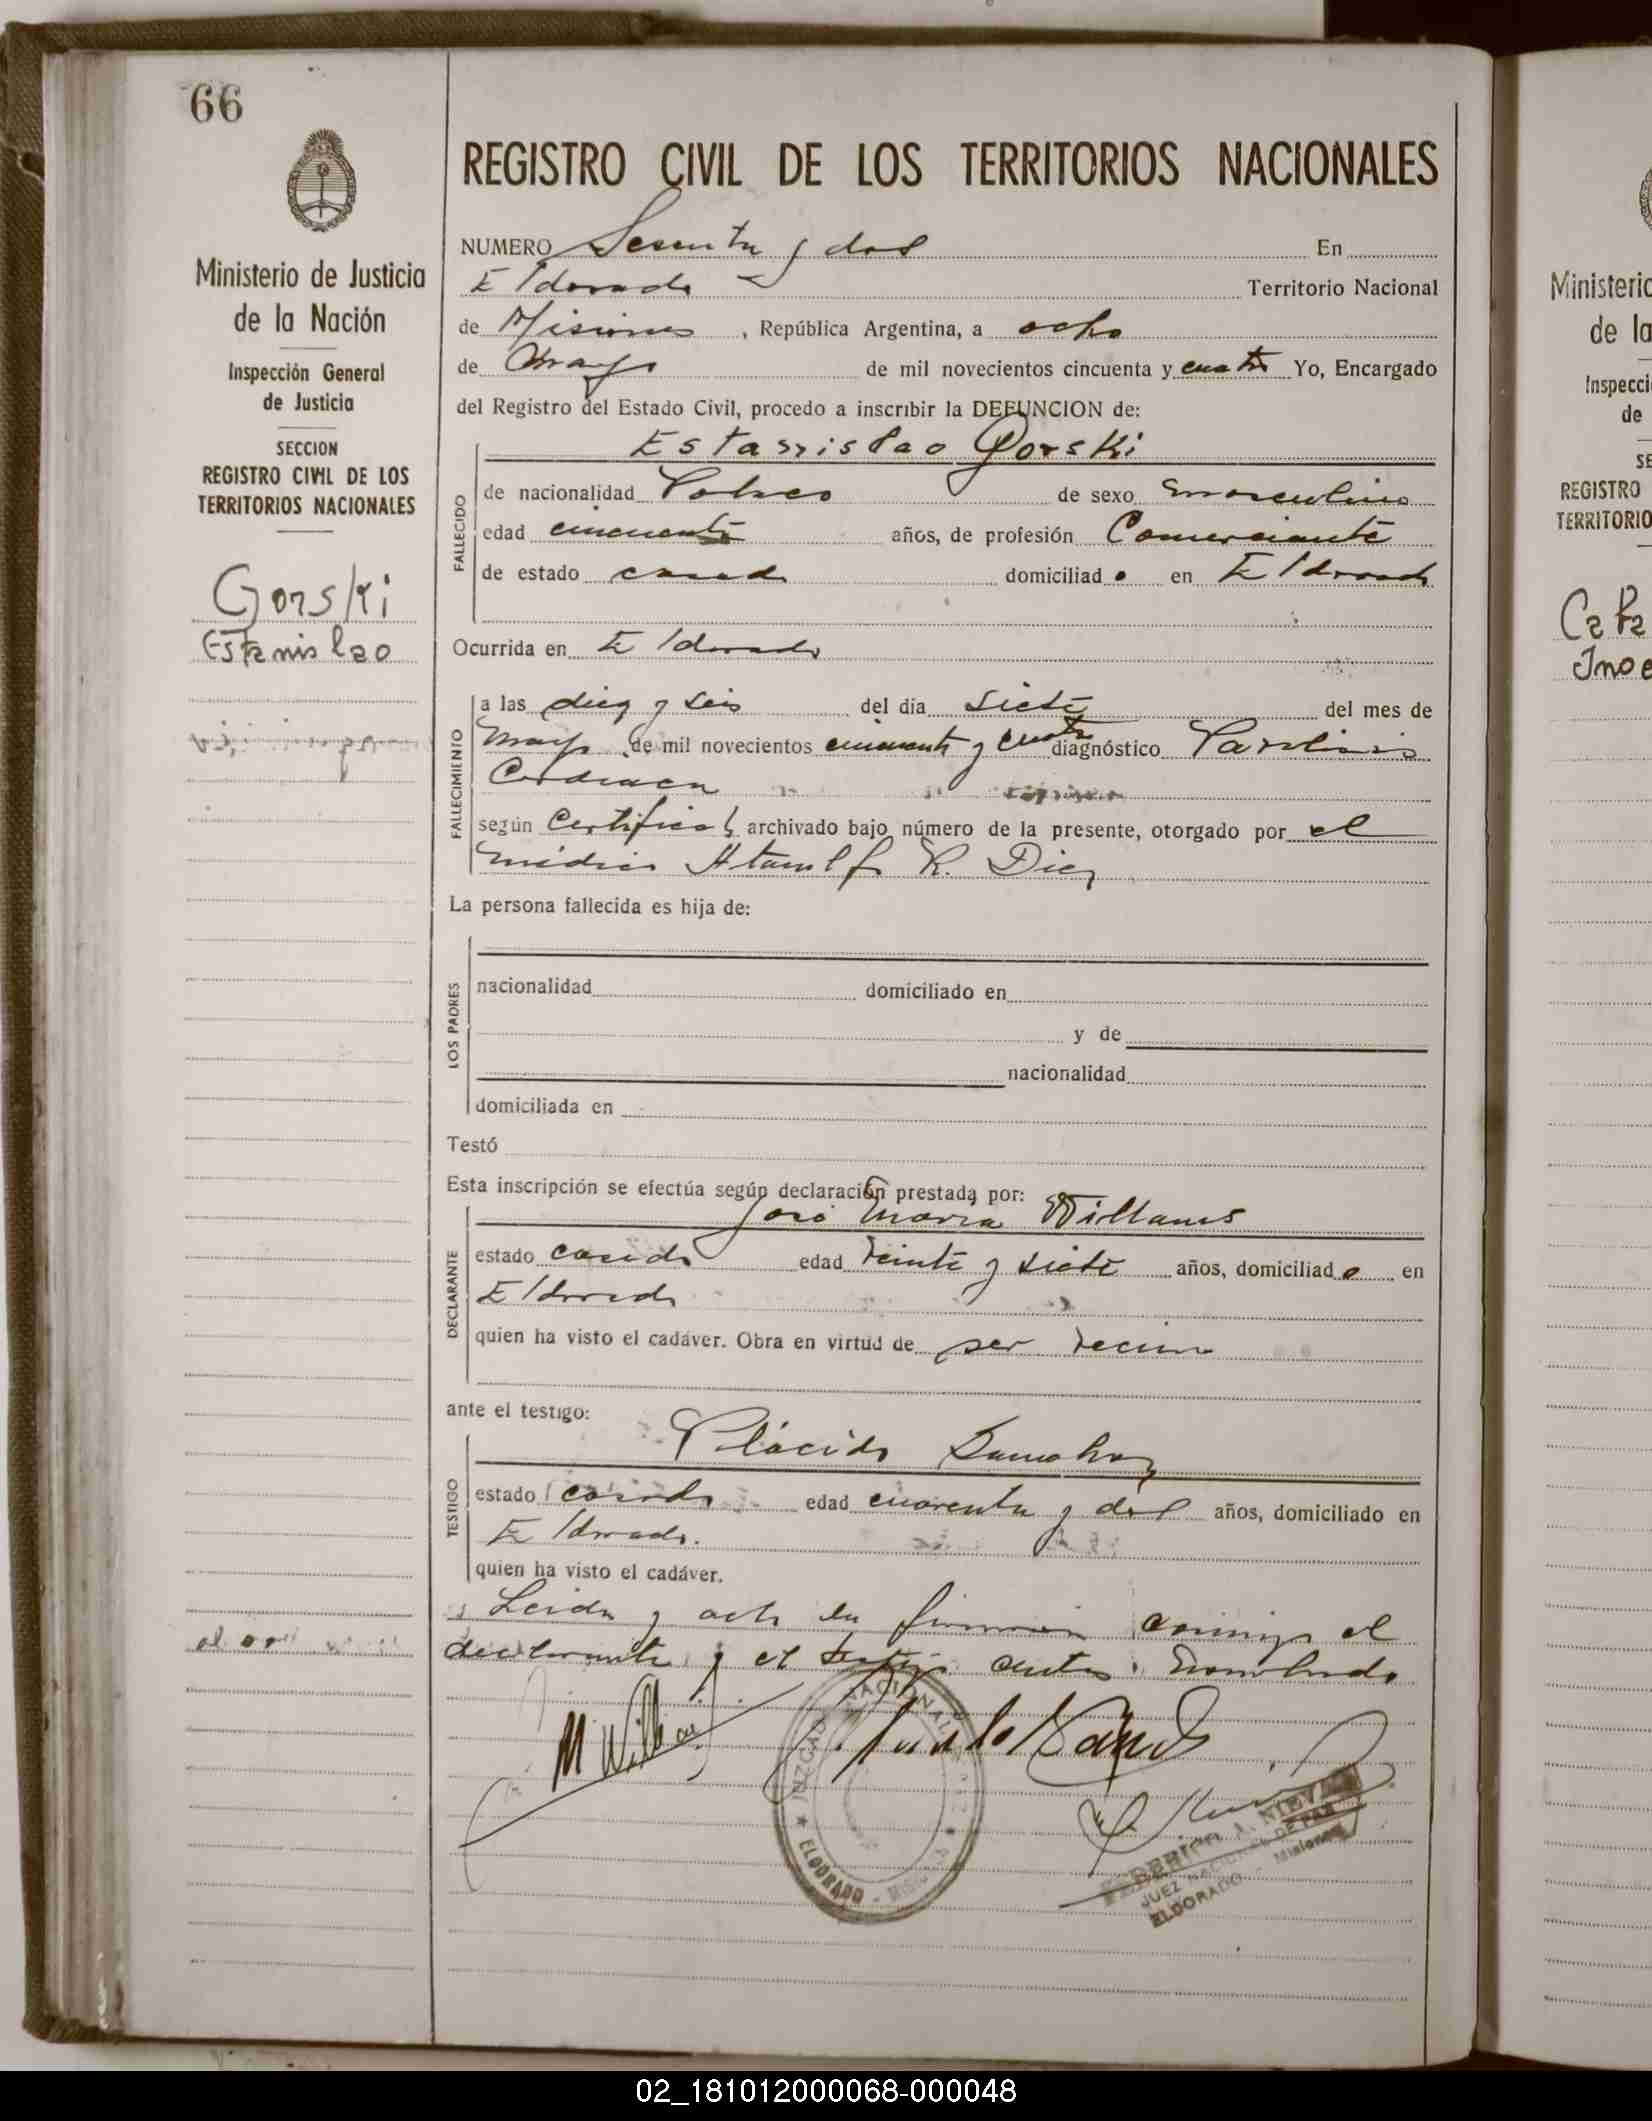 66
Ministerio de Justicia
de la Nación
Inspección General
de Justicia
SECCION
REGISTRO CIVIL DE LOS
TERRITORIOS NACIONALES
Gorski
Estanislao
REGISTRO CIVIL DE LOS TERRITORIOS NACIONALES
NUMERO Sesenta y dos En
Eldorado Territorio Nacional
de Misiones, República Argentina, a ocho
de Mayo de mil novecientos cincuenta y cuatro Yo, Encargado
del Registro del Estado Civil, procedo a inscribir la DEFUNCION de:
Estanislao Gorski
FALLECIDO
de nacionalidad Polaco de sexo masculino
edad cincuenta años, de profesión Comerciante
de estado casado domiciliado en Eldorado
Ocurrida en Eldorado
FALLECIMIENTO
a las diez y seis del día siete del mes de
Mayo de mil novecientos cincuenta y cuatro diagnóstico Paralisis
Cardiaca
según certificado archivado bajo número de la presente, otorgado por el
médico R. Diez
La persona fallecida es hija de:
LOS PADRES
nacionalidad domiciliado en
y de
nacionalidad
domiciliada en
Testó
Esta inscripción se efectúa según declaración prestada por:
José María Willams
DECLARANTE
estado casado edad veinte y siete años, domiciliado en
Eldorado
quien ha visto el cadáver. Obra en virtud de ser vecino
ante el testigo:
Plácido
TESTIGO
estado casado edad cuarenta y dos años, domiciliado en
Eldorado.
quien ha visto el cadáver.
Leida y acta la firmaron conmigo el
declarante y el testigo antes nombrado
JUZGADO NACIONAL DE PAZ
ELDORADO - MISIONES
FEDERICO A. NIEVAS
JUEZ NACIONAL DE PAZ
ELDORADO - Misiones
Ministerio
de la
Inspecci
de
SE
REGISTRO
TERRITORIO
02_181012000068-000048